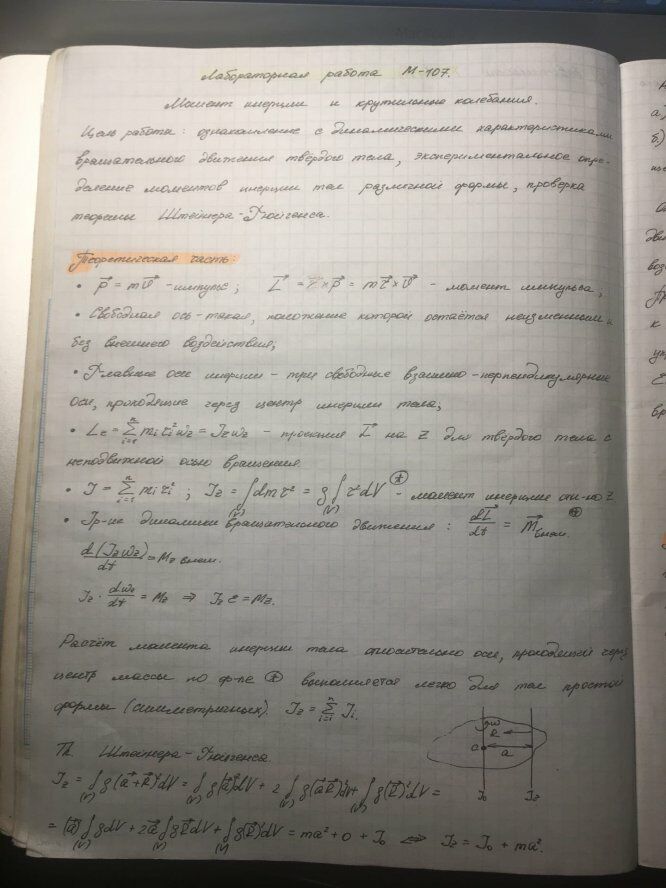 Лабораторная работа М-107.
Момент инерции и крутильные колебания.
Цель работы: ознакомление с динамическими характеристиками
вращательного движения твёрдого тела, экспериментальное опре-
деление моментов инерции тел различной формы, проверка
теоремы Штейнера-Гюйгенса.
Теоретическая часть:
• p⃗ = mv⃗ - импульс; L⃗ = r⃗×p⃗ = mr⃗×v⃗ - момент импульса;
• Свободная ось - такая, положение которой остаётся неизменным и
без внешнего воздействия;
• Главные оси инерции - три свободные взаимно-перпендикулярные
оси, проходящие через центр инерции тела;
• Lz = Σ(i=1..n) mᵢrᵢ²ωz = Jzωz - проекция L⃗ на Z для твёрдого тела с
неподвижной осью вращения.
• J = Σ(i=1..n) mᵢrᵢ²; Jz = ∫(V) dm r² = ρ∫(V) r²dV (*) - момент инерции отн-но Z
• Ур-ие динамики вращательного движения: dL⃗/dt = M⃗внеш. (*)
d(Jzωz)/dt = Mz внеш.
Jz · dωz/dt = Mz ⇒ Jz ε = Mz.
Расчёт момента инерции тела относительно оси, проходящей через
центр массы по ф-ле (*) выполняется легко для тел простой
формы (симметричных). Jz = Σ(i=1..n) Jᵢ.
R
C a
J₀ Jz
Th. Штейнера-Гюйгенса.
Jz = ∫(V) ρ(a⃗+R⃗)²dV = ∫(V) ρ(a⃗)²dV + 2∫(V) ρ(a⃗R⃗)dV + ∫(V) ρ(R⃗)²dV =
= (a⃗)²∫(V) ρdV + 2a⃗∫(V) ρR⃗dV + ∫(V) ρ(R⃗)²dV = ma² + 0 + J₀ ⇔ Jz = J₀ + ma².